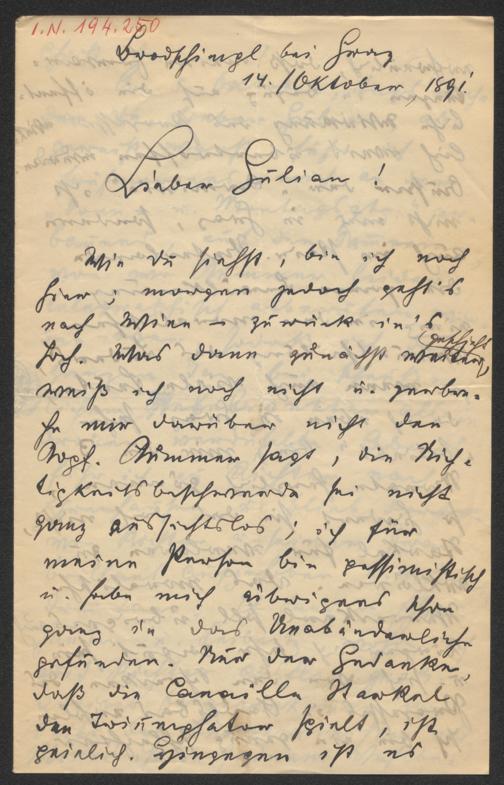 I.N. 194.250
Brodschimpl bei Graz
14./Oktober, 1891.
Lieber Julian!
Wie du siehst, bin ich noch
hier; morgen jedoch geht's
nach Wien – zurück in's
Joch. Was dann zunächst geschieht,
weiß ich noch nicht u. zerbre-
che mir darüber nicht den
Kopf. Kummer sagt, die Nich-
tigkeitsbeschwerde sei nicht
ganz aussichtslos; ich für
meine Person bin pessimistisch
u. habe mich übrigens schon
ganz in das Unabänderliche
gefunden. Nur der Gedanke,
daß die Canaille
den Triumphator spielt, ist
peinlich. Hingegen ist es